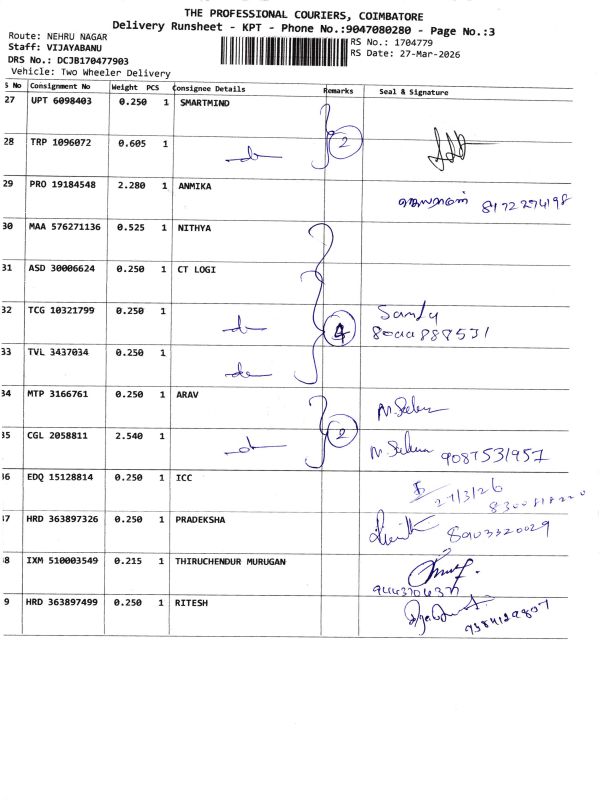 THE PROFESSIONAL COURIERS, COIMBATORE
Delivery Runsheet - KPT - Phone No.:9047080280 - Page No.:3
Route: NEHRU NAGAR
Staff: VIJAYABANU
DRS No.: DCJB170477903
Vehicle: Two Wheeler Delivery
RS No.: 1704779
RS Date: 27-Mar-2026
S No Consignment No Weight PCS Consignee Details Remarks Seal & Signature
27 UPT 6098403 0.250 1 SMARTMIND
28 TRP 1096072 0.605 1 do 2
29 PRO 19184548 2.280 1 ANMIKA 8172274198
30 MAA 576271136 0.525 1 NITHYA
31 ASD 30006624 0.250 1 CT LOGI
32 TCG 10321799 0.250 1 do 4 Sandy
33 TVL 3437034 0.250 1 do
34 MTP 3166761 0.250 1 ARAV
35 CGL 2058811 2.540 1 do 2 9087531957
36 EDQ 15128814 0.250 1 ICC 27/3/26
37 HRD 363897326 0.250 1 PRADEKSHA 8903320029
38 IXM 510003549 0.215 1 THIRUCHENDUR MURUGAN
39 HRD 363897499 0.250 1 RITESH